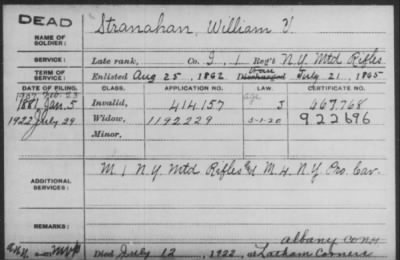 DEAD
NAME OF SOLDIER: Stranahan, William V.
SERVICE: Late rank, Co. I, 1 Reg't N.Y. Mtd Rifles
TERM OF SERVICE: Enlisted Aug 25, 1862 Discharged July 21, 1865
DATE OF FILING. CLASS. APPLICATION NO. LAW. CERTIFICATE NO.
1907 Feb. 23
1881 Jan. 5 Invalid, 414.157 age J 467.768
1922 July 29 Widow, 1192229 5-1-20 922696
Minor,
ADDITIONAL SERVICES: M, 1 N.Y. Mtd Rifles & M, 4, N.Y. Pro. Cav.
REMARKS:
Albany Co NY
Died July 12, 1922, at Latham Corners